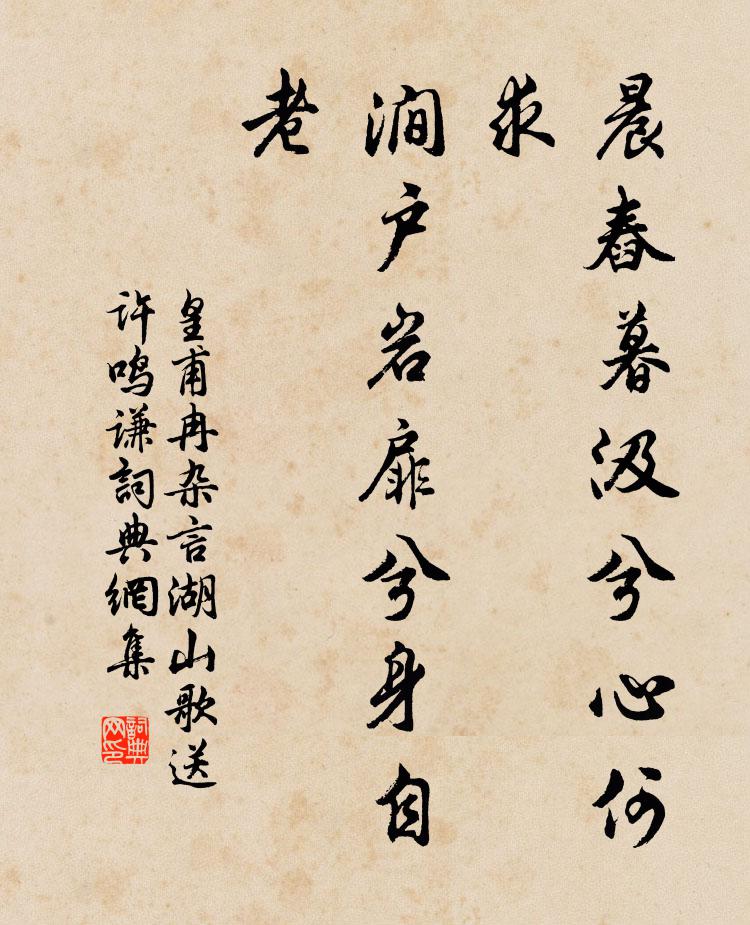 晨舂暮汲兮心何
求
澗户岩扉兮身自
老
皇甫冉杂言湖山歌送
许鸣谦詞典網集
詞典
网印